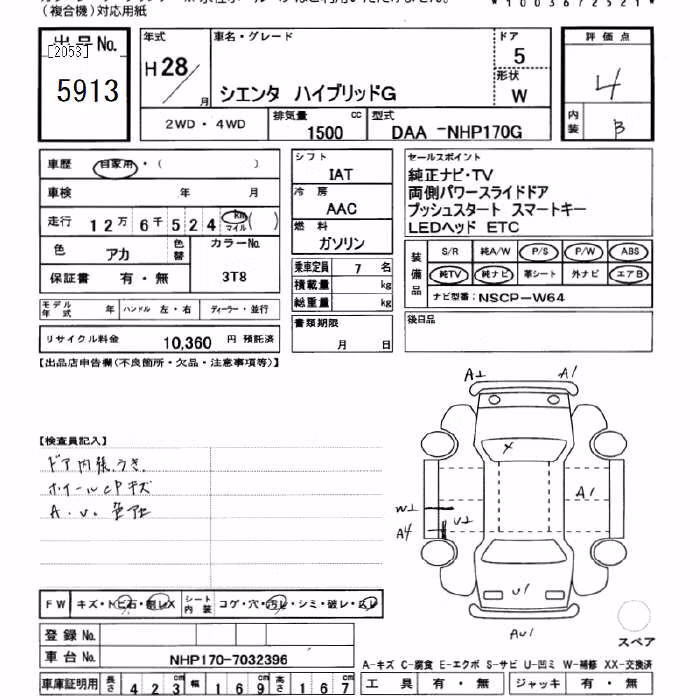 （複合機）対応用紙
*10036725​21*
出品No.
[2053]
5913
年式
H28/
月
車名・グレード
シエンタ ハイブリッドG
ドア
5
形状
W
評価点
4
内装
B
2WD・4WD
排気量
1500
cc
型式
DAA -NHP170G
車歴
自家用・（ ）
車検
年 月
走行
12万6千524
km
マイル
( )
色
アカ
色替
カラーNo.
3T8
保証書
有・無
モデル年式
年
ハンドル 左・右
ディーラー・並行
リサイクル料金
10,360
円 預託済
シフト
IAT
冷房
AAC
燃料
ガソリン
乗車定員 7 名
積載量 kg
総重量 kg
書類期限
月 日
セールスポイント
純正ナビ・TV
両側パワースライドドア
プッシュスタート スマートキー
LEDヘッド ETC
装備品
S/R 純A/W P/S P/W ABS
純TV 純ナビ 革シート 外ナビ エアB
ナビ型番：NSCP-W64
後日品
【出品店申告欄（不良箇所・欠品・注意事項等）】
【検査員記入】
ドア内張うき.
ホイールCPキズ
A.U.
A1
X
A1
W
A4
U
U1
AU1
スペア
FW
キズ・トビ石・割レX
シート内装
コゲ・穴・汚レ・シミ・破レ・スレ
登録No.
車台No.
NHP170-7032396
車庫証明用
長さ 423 cm
幅 169 cm
高さ 167 cm
A-キズ C-腐食 E-エクボ S-サビ U-凹ミ W-補修 XX-交換済
工具 有・無
ジャッキ 有・無